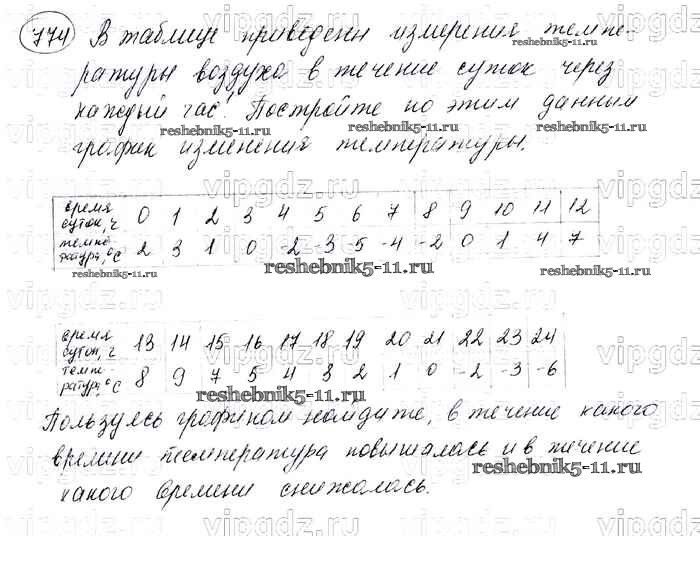 774 В таблице приведены измерения темпе-
ратуры воздуха в течение суток через
каждый час. Постройте по этим данным
график изменения температуры.
время суток, ч 0 1 2 3 4 5 6 7 8 9 10 11 12
темпе-ратура, °С 2 3 1 0 -2 -3 -5 -4 -2 0 1 4 7
время суток, ч 13 14 15 16 17 18 19 20 21 22 23 24
темпе-ратура, °С 8 9 7 5 4 3 2 1 0 -2 -3 -6
Пользуясь графиком найдите, в течение какого
времени температура повышалась и в течение
какого времени снижалась.
reshebnik5-11.ru
vipgdz.ru